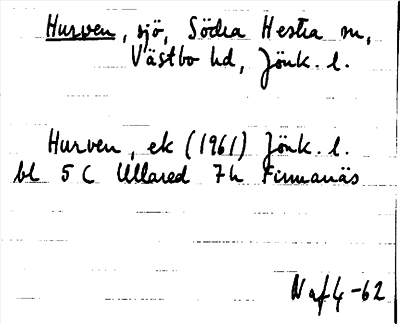 Hurven, sjö, Södra Hestra sn,
Västbo hd, Jönk. l.
Hurven, ek (1961) Jönk. l.
bl 5 C Ullared 7h Finnanäs
N af 4-62